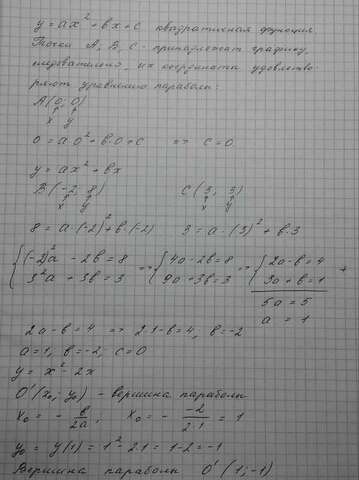 y = ax² + bx + c квадратичная функция.
Точки A, B, C - принадлежат графику,
следовательно, их координаты удовлетво-
ряют уравнению параболы:
A(0; 0)
x y
0 = a·0² + b·0 + c => c = 0
y = ax² + bx
B(-2; 8) C(3; 3)
x y x y
8 = a·(-2)² + b·(-2) 3 = a·(3)² + b·3
{(-2)²a - 2b = 8 => {4a - 2b = 8 => {2a - b = 4 +
3²a + 3b = 3 9a + 3b = 3 3a + b = 1
5a = 5
a = 1
2a - b = 4 => 2·1 - b = 4, b = -2
a = 1, b = -2, c = 0
y = x² - 2x
O'(x₀; y₀) - вершина параболы
x₀ = - b/2a; x₀ = - -2/2·1 = 1
y₀ = y(1) = 1² - 2·1 = 1 - 2 = -1
Вершина параболы O'(1; -1)